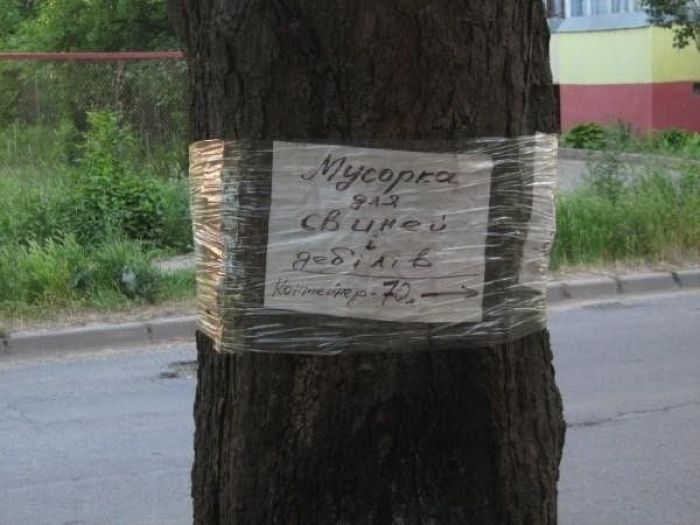 Мусорка
для
свиней
і
дебілів
Контейнер - 70м →